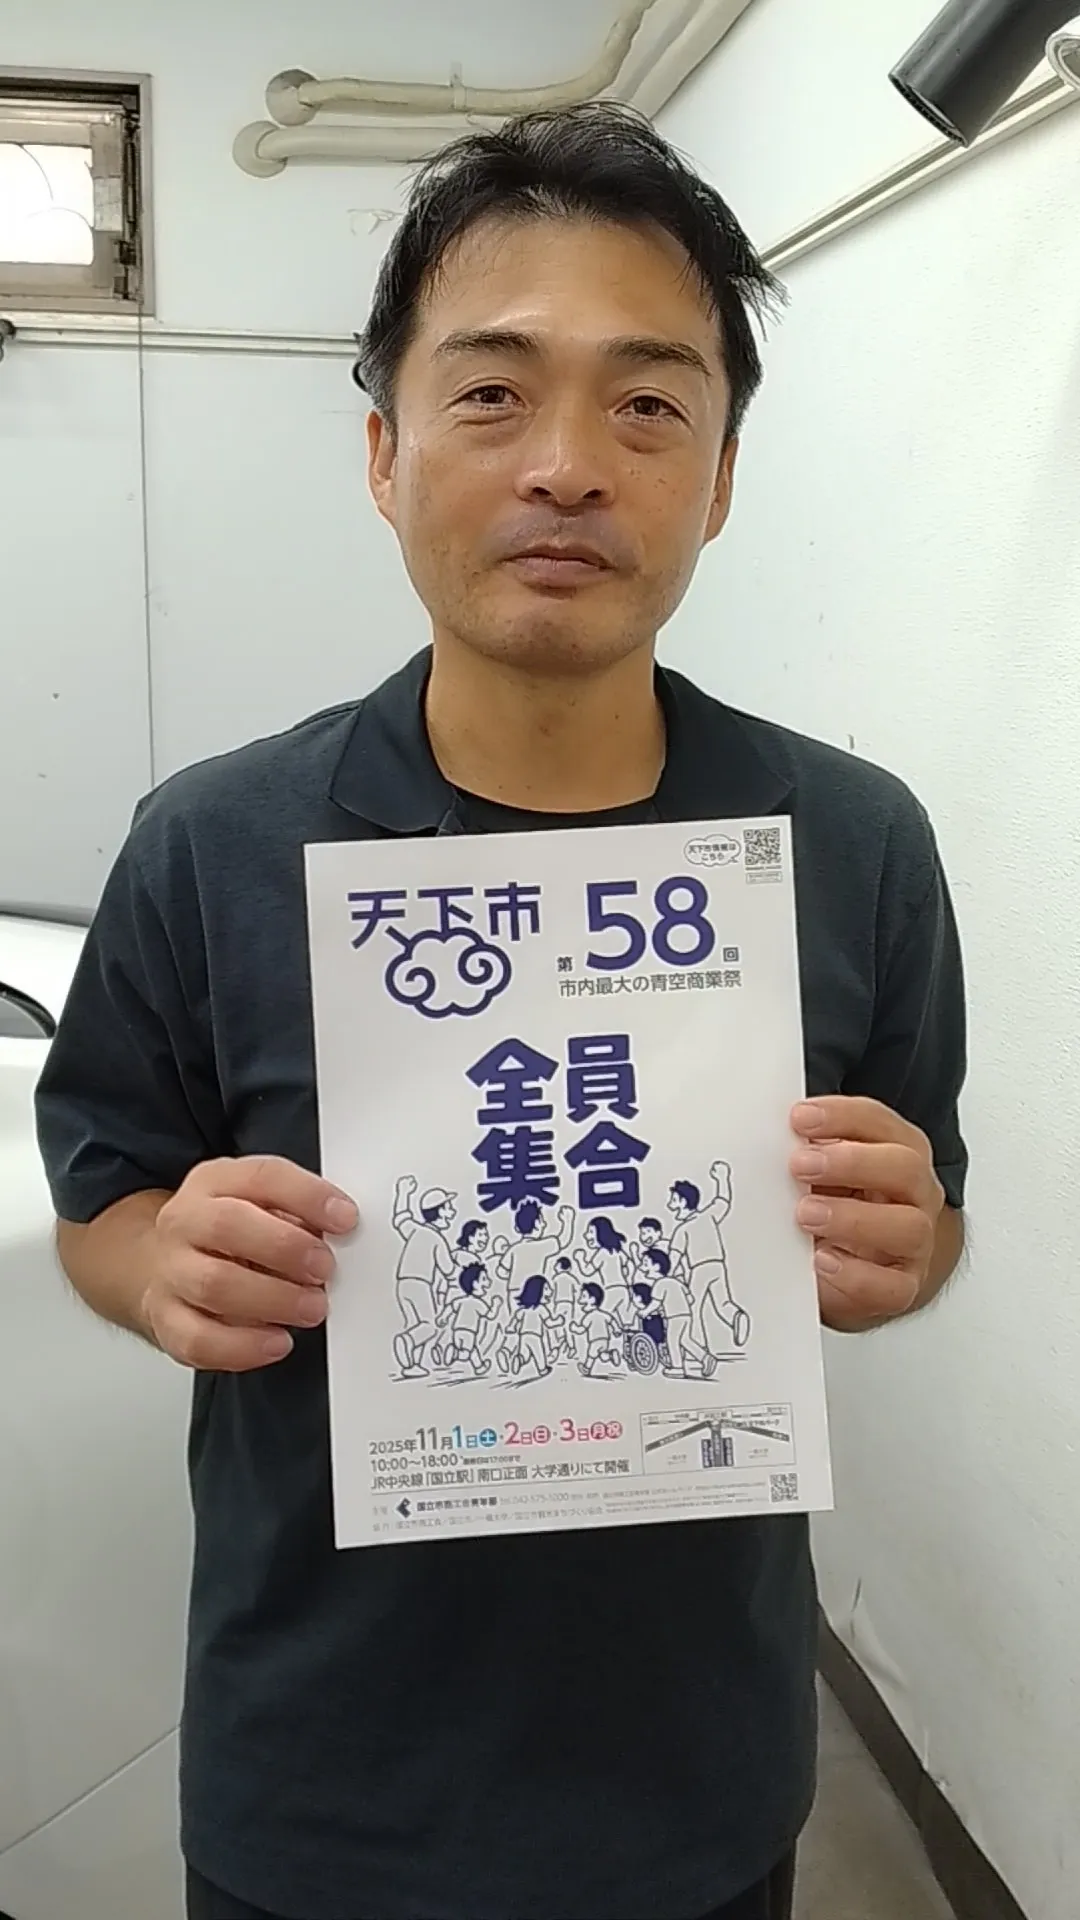 天下市情報は
こちら
天下市
第58回
市内最大の青空商業祭
全員
集合
2025年11月1日土・2日日・3日月祝
10:00〜18:00 最終日は17:00まで
JR中央線「国立駅」南口正面 大学通りにて開催
主催 国立市商工会青年部